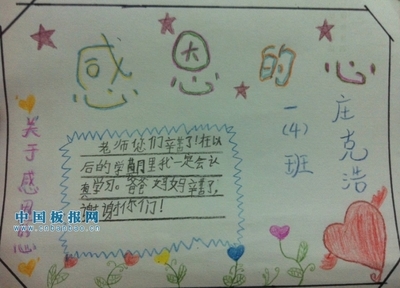 感恩的心
一(4)班
庄克浩
关于感恩的心
老师您们辛苦了!在以
后的学期里我一定会认
真学习。爸爸妈妈辛苦了,
谢谢你们!
中国板报网